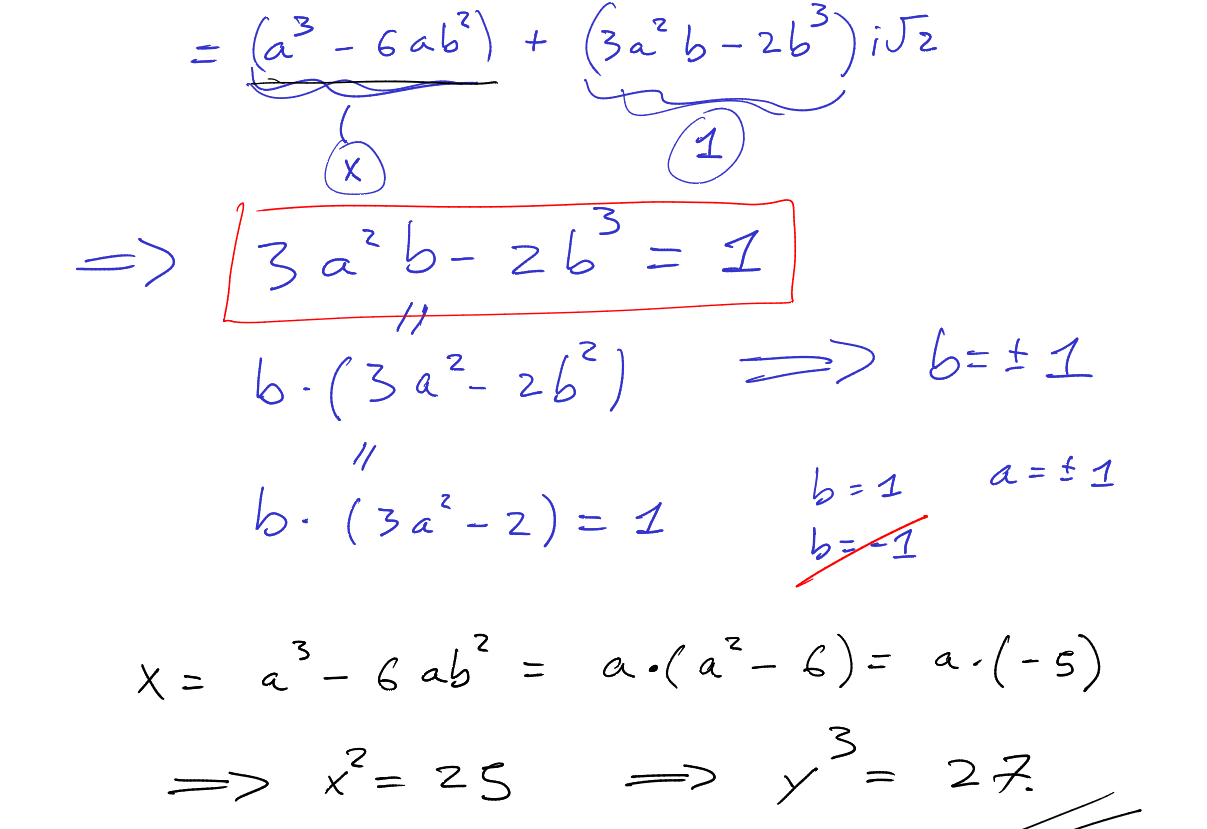 = (a³ - 6ab²) + (3a²b - 2b³) i√2
x 1
⇒ 3a²b - 2b³ = 1
〃
b · (3a² - 2b²) ⇒ b = ± 1
〃
b = 1 a = ± 1
b · (3a² - 2) = 1
b = -1
x = a³ - 6ab² = a · (a² - 6) = a · (-5)
⇒ x² = 25 ⇒ y³ = 27.